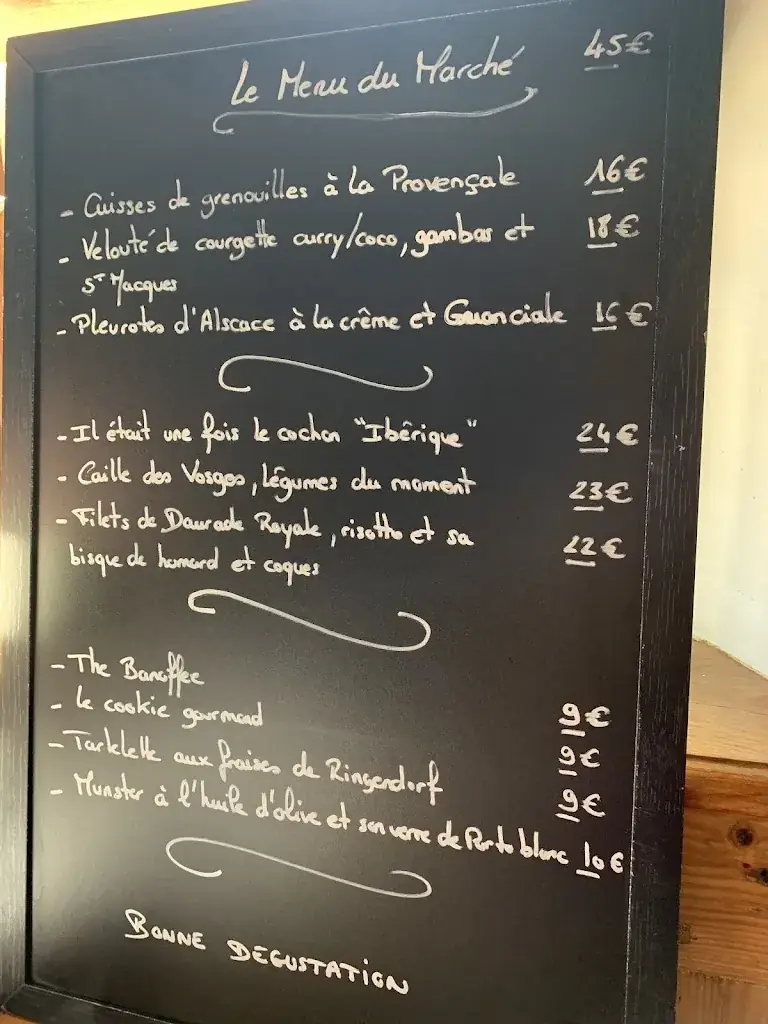 Le Menu du Marché 45€
- Cuisses de grenouilles à la Provençale 16€
- Velouté de courgette curry/coco, gambas et 18€
St Jacques
- Pleurotes d'Alscace à la crême et Guanciale 16€
- Il était une fois le cochon "Ibêrique" 24€
- Caille des Vosges, légumes du moment 23€
- Filets de Daurade Royale, risotto et sa 22€
bisque de homard et coques
- The Banoffee 9€
- Le cookie gourmand 9€
- Tarklette aux fraises de Ringendorf 9€
- Munster à l'huile d'olive et son verre de Porto blanc 10€
BONNE DEGUSTATION